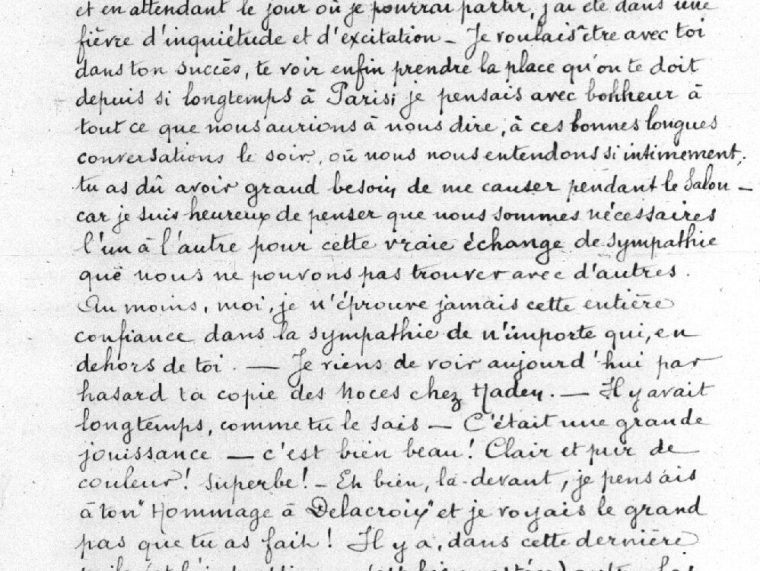 et en attendant le jour où je pourrai partir, j'ai été dans une
fièvre d'inquiétude et d'excitation – Je voulais être avec toi
dans ton succès, te voir enfin prendre la place qu'on te doit
depuis si longtemps à Paris; je pensais avec bonheur à
tout ce que nous aurions à nous dire, à ces bonnes longues
conversations le soir, où nous nous entendons si intimement,
tu as dû avoir grand besoin de me causer pendant le Salon –
car je suis heureux de penser que nous sommes nécessaires
l'un à l'autre pour cette vraie échange de sympathie
que nous ne pouvons pas trouver avec d'autres.
Au moins, moi, je n'éprouve jamais cette entière
confiance dans la sympathie de n'importe qui, en
dehors de toi. — Je viens de voir aujourd'hui par
hasard ta copie des Noces chez Haden. — Il y avait
longtemps, comme tu le sais — C'était une grande
jouissance — c'est bien beau! Clair et pur de
couleur! Superbe! – Eh bien, là-devant, je pensais
à ton "Hommage à Delacroix" et je voyais le grand
pas que tu as fait! Il y a, dans cette dernière